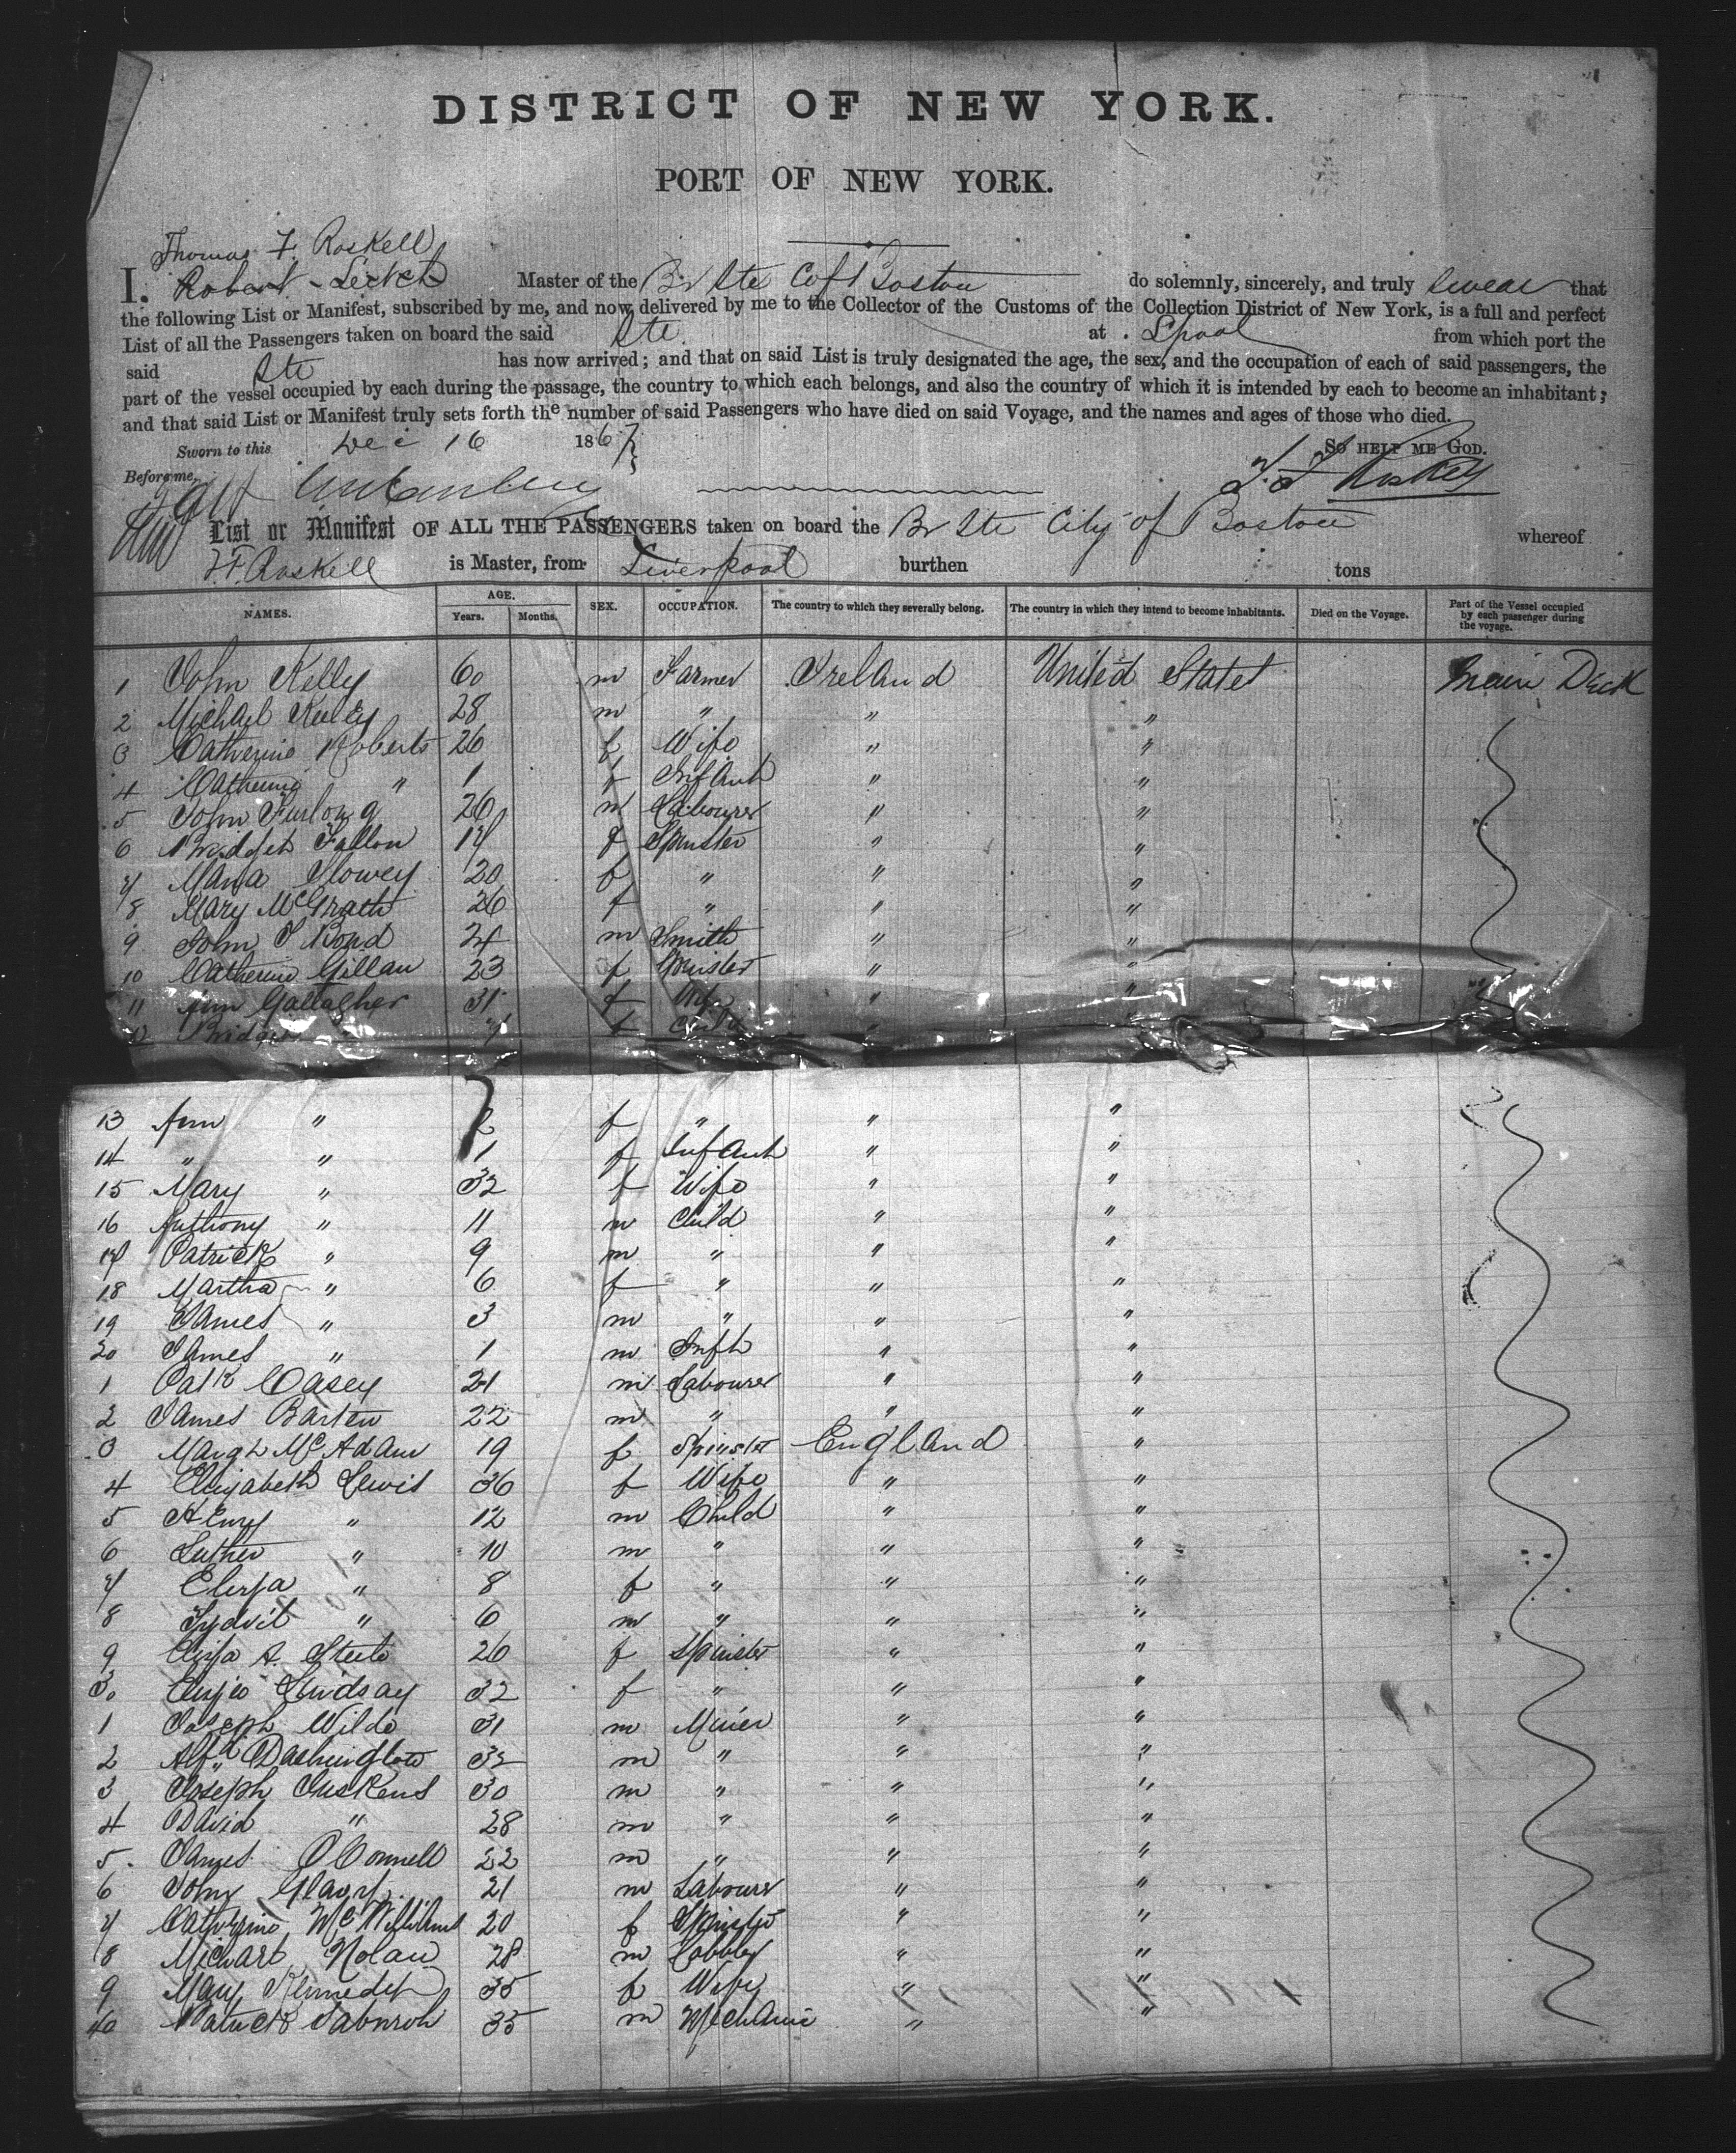 DISTRICT OF NEW YORK.
PORT OF NEW YORK.
Thomas F. Roskell
I. Robert Leitch Master of the Br Ste C of Boston do solemnly, sincerely, and truly swear that
the following List or Manifest, subscribed by me, and now delivered by me to the Collector of the Customs of the Collection District of New York, is a full and perfect
List of all the Passengers taken on board the said Ste. at Lpool from which port the
said Ste has now arrived; and that on said List is truly designated the age, the sex, and the occupation of each of said passengers, the
part of the vessel occupied by each during the passage, the country to which each belongs, and also the country of which it is intended by each to become an inhabitant;
and that said List or Manifest truly sets forth the number of said Passengers who have died on said Voyage, and the names and ages of those who died.
Sworn to this Dec 16 1867 SO HELP ME GOD.
Before me, T. F. Roskell
List or Manifest OF ALL THE PASSENGERS taken on board the Br Ste City of Boston whereof
T. F. Roskell is Master, from Liverpool burthen tons
NAMES. AGE. Years. Months. SEX. OCCUPATION. The country to which they severally belong. The country in which they intend to become inhabitants. Died on the Voyage. Part of the Vessel occupied by each passenger during the voyage.
1 John Kelly 60 m Farmer Ireland United States Main Deck
2 Michael 28 m " " "
3 Catherine Roberts 26 f Wife " "
4 Catherine " 1 f Infant " "
5 John Furlong 26 m Labourer " "
6 Bridget Fallon 17 f Spinster " "
7 Maria Slowey 20 f " " "
8 Mary McGrath 26 f " " "
9 John S Bond 24 m Smith " "
10 Catherine Gillan 23 f Spinster " "
11 Ann Gallagher 31 f Wife " "
12 Bridget " f Child " "
13 Ann " 2 f " " "
14 " " 1 f Infant " "
15 Mary " 32 f Wife " "
16 Anthony " 11 m Child " "
17 Patrick " 9 m " " "
18 Martha " 6 f " " "
19 James " 3 m " " "
20 James " 1 m Inft " "
1 Patk Casey 21 m Labourer " "
2 James Barten 22 m " " "
3 Margh McAdam 19 f Spinster England "
4 Elizabeth Lewis 36 f Wife " "
5 Henry " 12 m Child " "
6 Luther " 10 m " " "
7 Eliza " 8 f " " "
8 Tydvil " 6 m " " "
9 Eliza A. Steele 26 f Spinster " "
30 Lindsay 32 f " " "
1 Joseph Wilde 31 m Miner " "
2 Alfd 32 m " " "
3 Joseph 30 m " " "
4 David " 28 m " " "
5 James O'Connell 22 m " " "
6 John 21 m Labourer " "
7 Catherine McWilliams 20 f Spinster " "
8 Michael Nolan 28 m " "
9 Mary Kennedy 35 f Wife " "
40 Patrick 35 m Mechanic " "